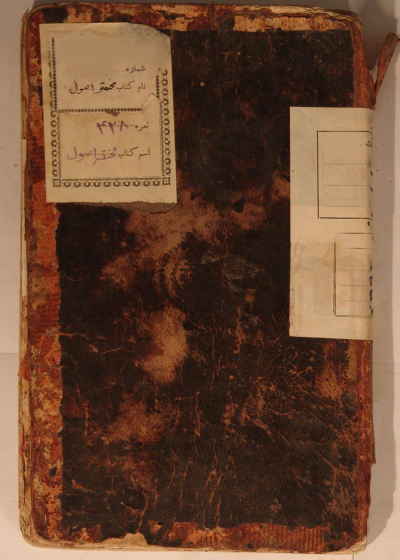 شماره
نام کتاب مختصر اصول
نمره ۴۲۸
اسم کتاب مختصر اصول